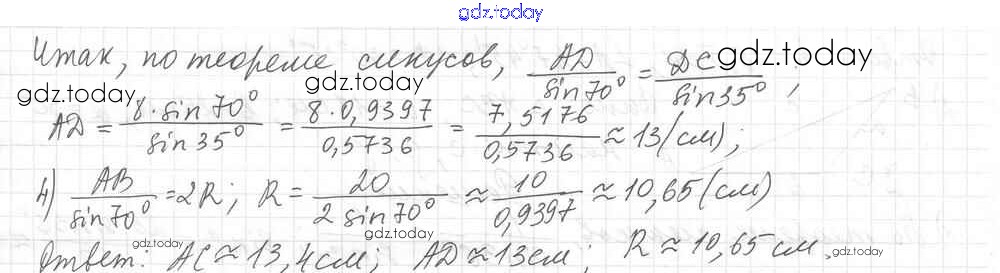 gdz.today
Итак, по теореме синусов, AD/sin70° = DC/sin35°; gdz.today
gdz.today gdz.today
AD = 8·sin70°/sin35° = 8·0,9397/0,5736 = 7,5176/0,5736 ≈ 13(см);
4) AB/sin70° = 2R; R = 20/2sin70° ≈ 10/0,9397 ≈ 10,65(см)
gdz.today gdz.today gdz.today
Ответ: AC ≈ 13,4см; AD ≈ 13см; R ≈ 10,65см.
gdz.today gdz.today gdz.today